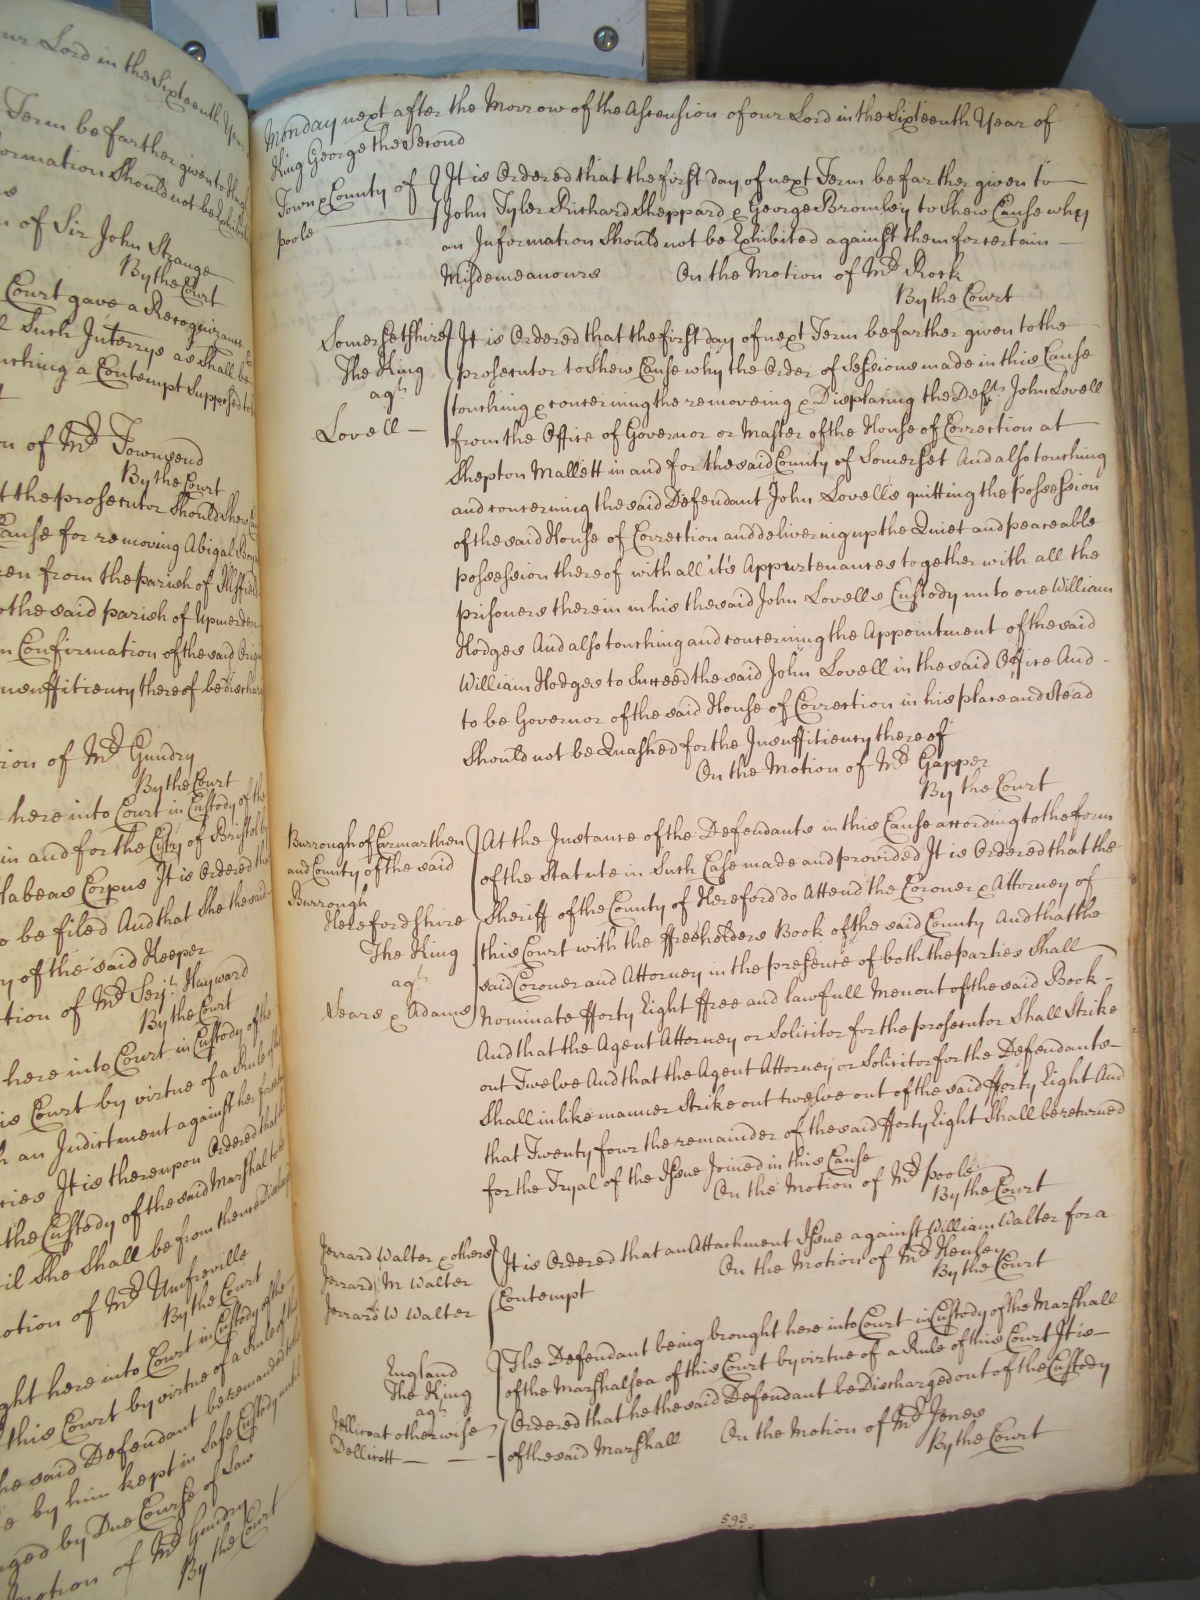 our Lord in the Sixteenth Year
Term be farther given to
formation Should not be Exhibited
n of Sir John Strange
By the Court
Court gave a Recognizance
Such Interrys as Shall be
uching a Contempt Supposed to
on of Mr. Townsend
By the Court
t the prosecutor Should Shew
Cause for removing Abigal
ren from the parish of
o the said parish of Upmerden
n Confirmation of the said Order
nsufficiency thereof be discharged
tion of Mr. Gundry
By the Court
here into Court in Custody of the
in and for the City of Bristol by
Habeas Corpus It is Ordered that
o be filed And that She the said
y of the said Keeper
tion of Mr. Serjt. Hayward
By the Court
here into Court in Custody of the
is Court by virtue of a Rule of
h an Indictment against her for
It is thereupon Ordered that
the Custody of the said Marshal to
il She Shall be from thence Discharged
otion of Mr. Umfreville
By the Court
ght here into Court in Custody of the
this Court by virtue of a Rule of this
he said Defendant be remanded to the
e by him kept in Safe Custody until
aged by Due Course of Law
Motion of Mr. Gundry
By the Court
Monday next after the Morrow of the Ascension of our Lord in the Sixteenth Year of
King George the Second
Town & County of
poole
It is Ordered that the first day of next Term be farther given to
John Tyler Richard Sheppard & George Bromley to Shew Cause why
an Information Should not be Exhibited against them for certain
Misdemeanours On the Motion of Mr. Rock
By the Court
Somersetshire
The King
agt.
Lovell
It is Ordered that the first day of next Term be farther given to the
prosecutor to Shew Cause why the Order of Sessions made in this Cause
touching & concerning the removeing & Displacing the Deft. John Lovell
from the Office of Governor or Master of the House of Correction at
Shepton Mallett in and for the said County of Somerset And also touching
and concerning the said Defendant John Lovell's quitting the possession
of the said House of Correction and delivering up the Quiet and peaceable
possession thereof with all it's Appurtenances together with all the
prisoners therein in his the said John Lovells Custody unto one William
Hodges And also touching and concerning the Appointment of the said
William Hodges to Succeed the said John Lovell in the said Office And
to be Governor of the said House of Correction in his place and Stead
Should not be Quashed for the Insufficiency thereof
On the Motion of Mr. Gapper
By the Court
Burrough of Carmarthen
and County of the said
Burrough
Herefordshire
The King
agt.
Sears & Adams
At the Instance of the Defendants in this Cause according to the form
of the Statute in Such Case made and provided It is Ordered that the
Sheriff of the County of Hereford do Attend the Coroner & Attorney of
this Court with the ffreeholders Book of the said County And that the
said Coroner and Attorney in the presence of both the parties Shall
Nominate fforty Eight ffree and lawfull Men out of the said Book
And that the Agent Attorney or Solicitor for the prosecutor Shall Strike
out Twelve And that the Agent Attorney or Solicitor for the Defendants
Shall in like manner Strike out twelve out of the said fforty Eight And
that Twenty four the remainder of the said fforty Eight Shall be returned
for the Tryal of the Issue Joined in this Cause
On the Motion of Mr. poole
By the Court
Jerrard Walter & others
Jerrard M Walter
Jerrard W Walter
It is Ordered that an Attachment Issue against William Walter for a
Contempt
On the Motion of Mr. Henley
By the Court
England
The King
agt.
Jellicoat otherwise
Dellicott
The Defendant being brought here into Court in Custody of the Marshall
of the Marshalsea of this Court by virtue of a Rule of this Court It is
Ordered that he the said Defendant be Discharged out of the Custody
of the said Marshall On the Motion of Mr. Jones
By the Court
593